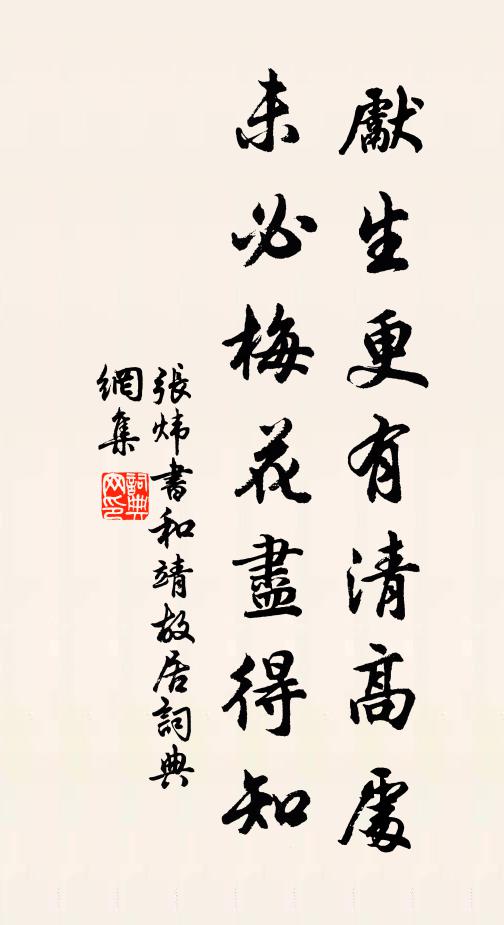 獻生更有清高處
未必梅花盡得知
張煒書和靖故居詞典
網集
詞典
网印